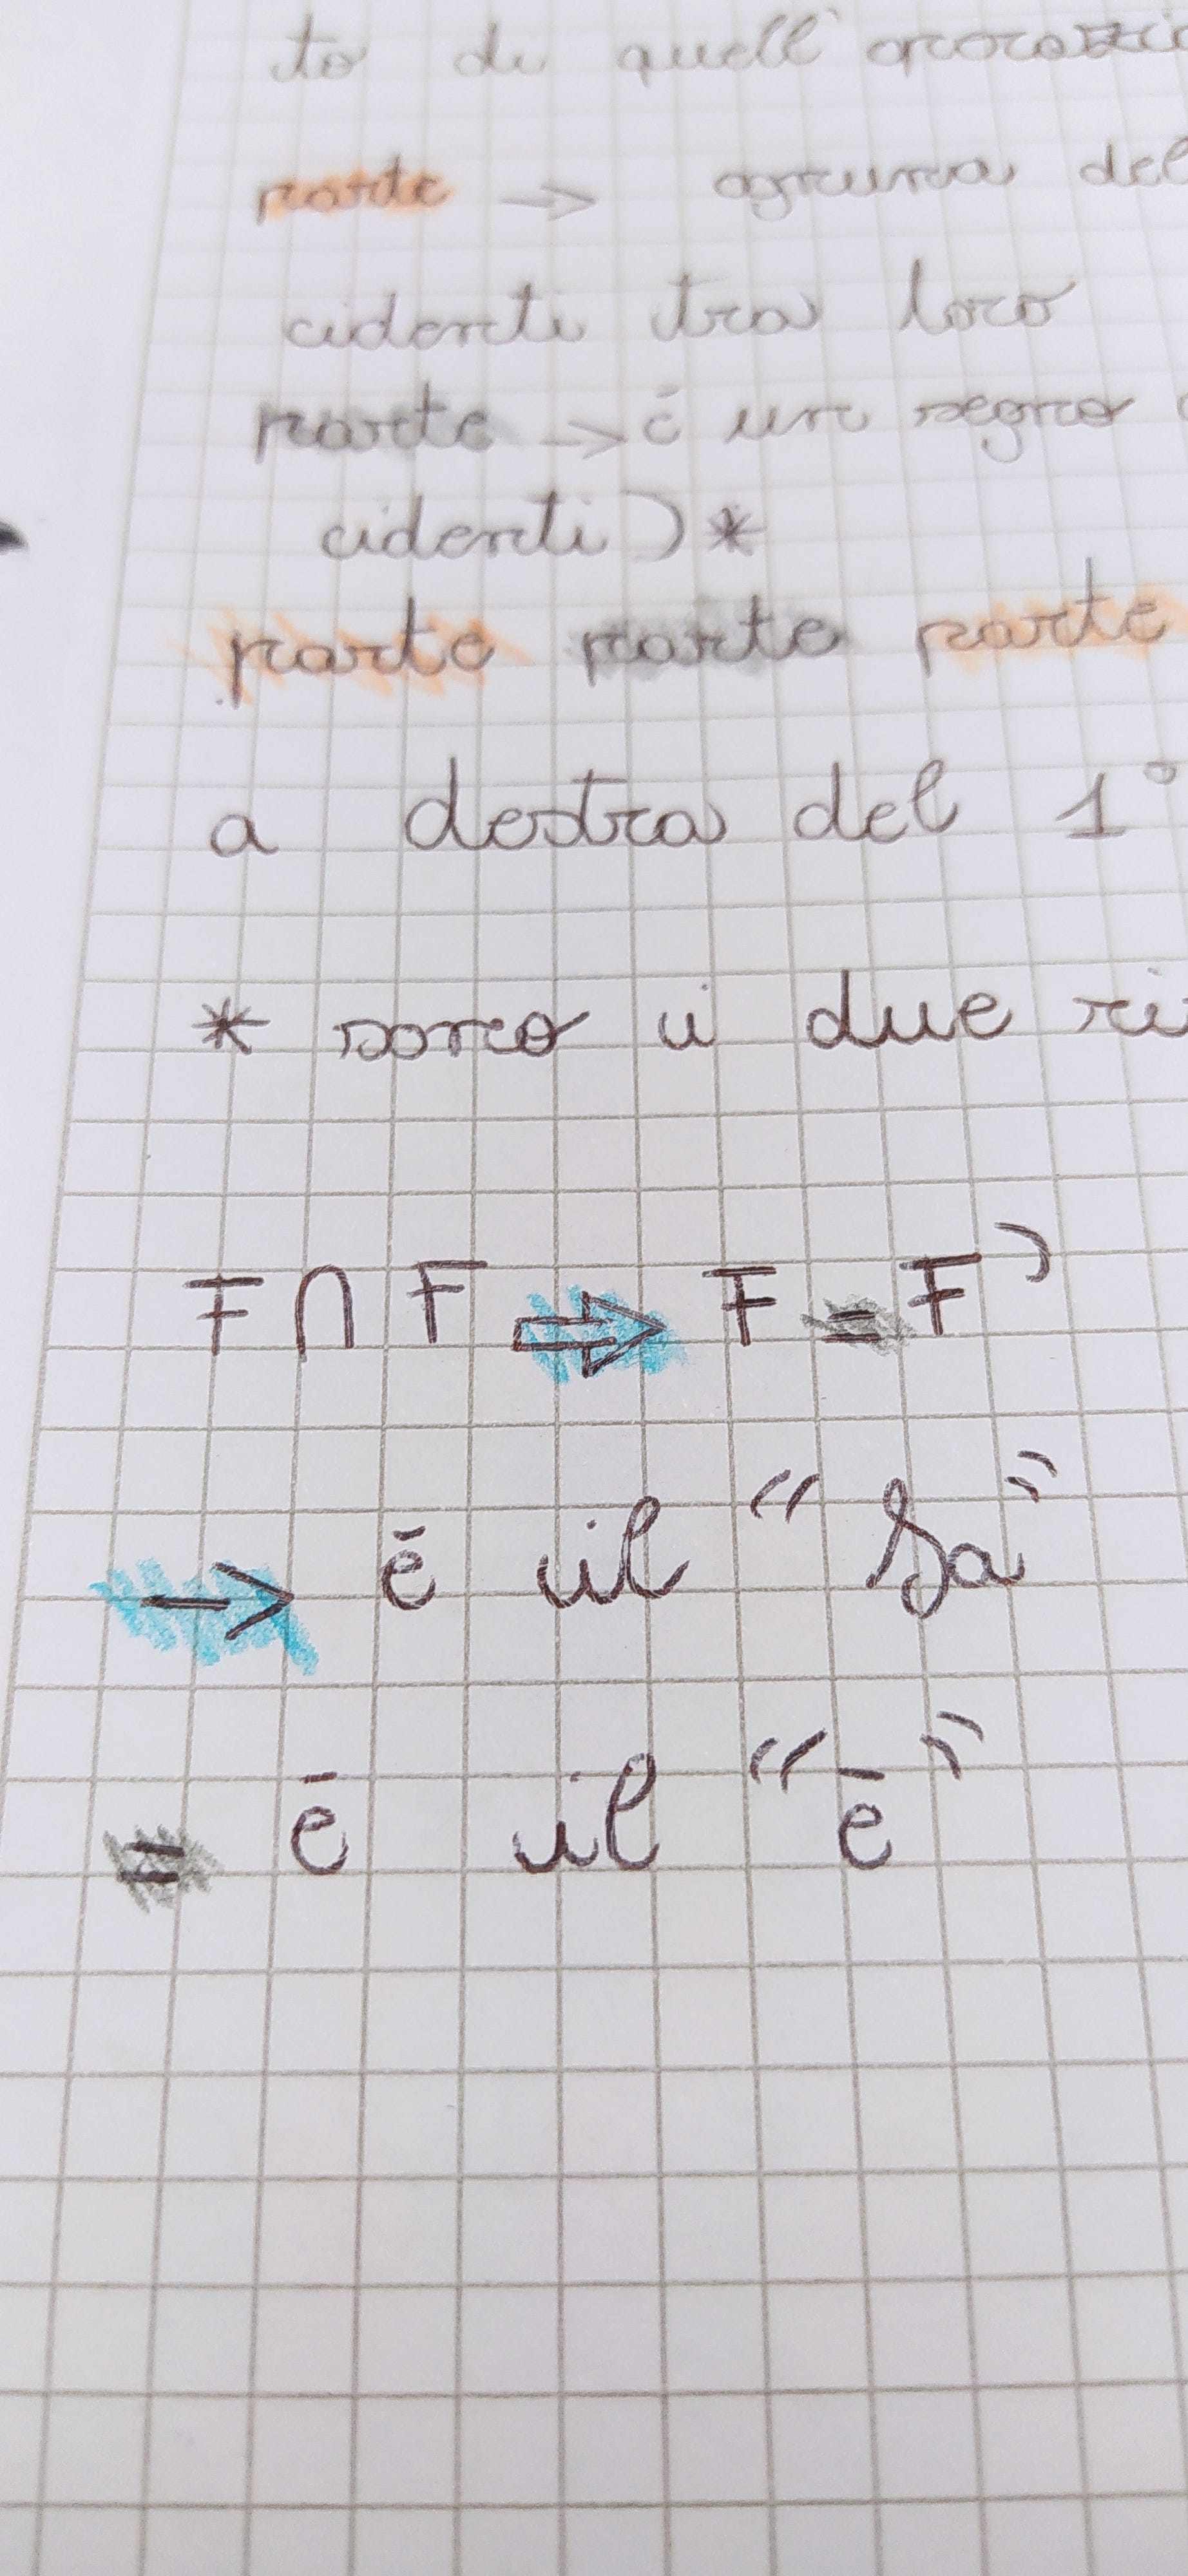 to di quell'operazio
parte → ognuna del
cidenti tra loro
parte → è un segno
cidenti) *
parte parte parte
a destra del 1°
* sono i due ri
F ∩ F ⇒ F = F'
→ è il "Sa"
= è il "è"